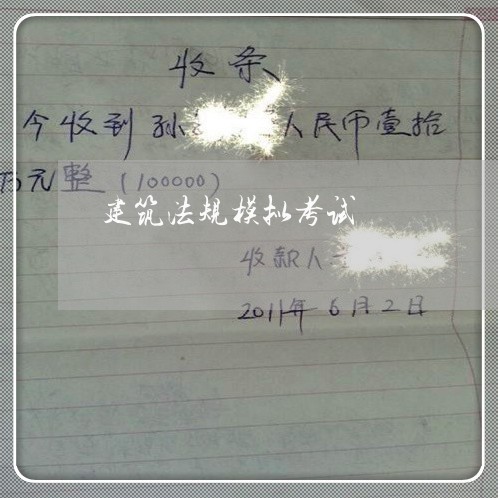 收条
今收到孙 人民币壹拾
万元整（100000）
建筑法规模拟考试
收款人
2011年6月2日